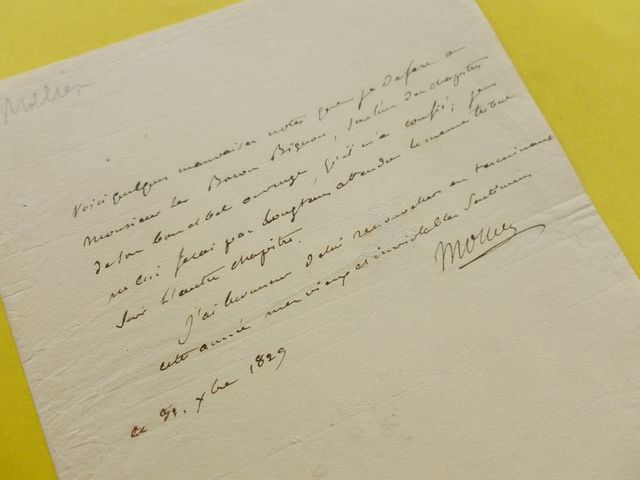 Mollien
Voici quelques mauvaises notes que je défère à
Monsieur le Baron Bignon, sur l'un des chapitres
de son bon et bel ouvrage, qu'il m'a confié; je
ne lui ferai pas longtems attendre le même tribut
sur l'autre chapitre.
J'ai l'honneur de lui renouveler en terminant
cette année mes vieux et inviolables sentimens
Mollien
ce 31. xbre 1829